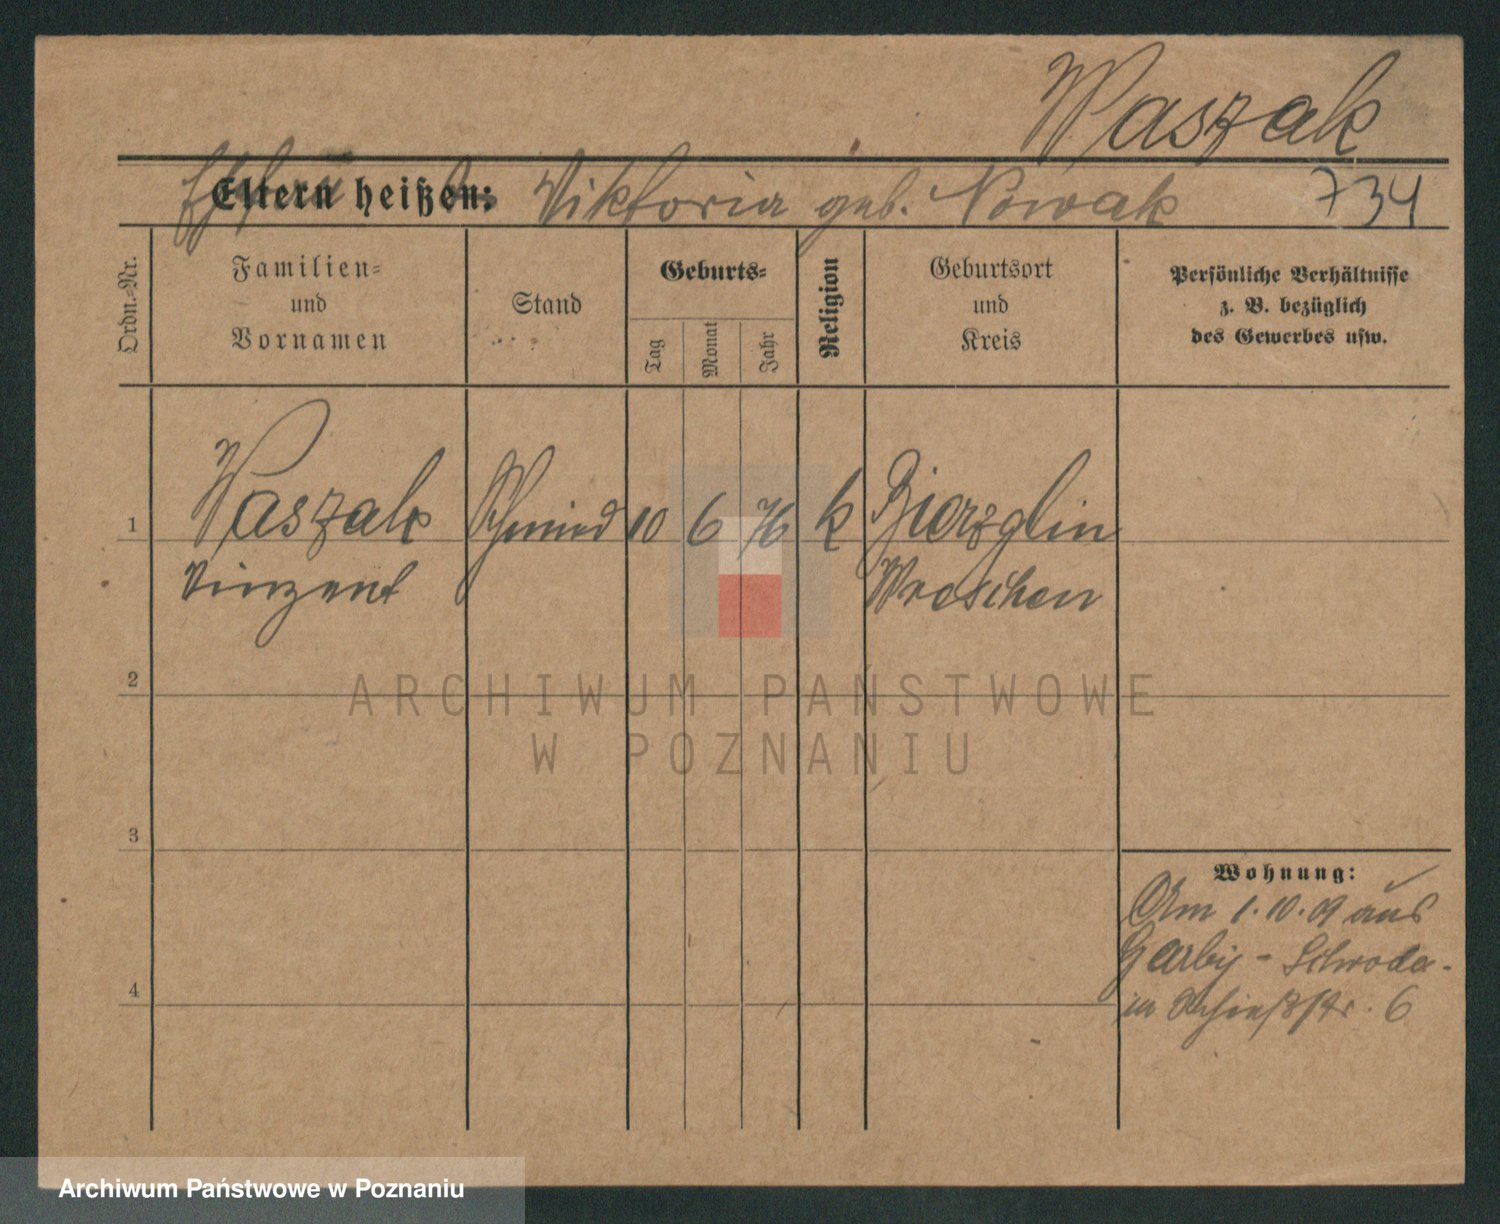 Waszak
Eltern heißen: Viktoria geb. Nowak 734
Ordn.-Nr.
Familien-
und
Vornamen
Stand
Geburts-
Tag
Monat
Jahr
Religion
Geburtsort
und
Kreis
Persönliche Verhältnisse
z. B. bezüglich
des Gewerbes usw.
1 Waszak Schmied 10 6 76 k Bierzglin
Vinzent Wreschen
2
3
4
Wohnung:
Am 1.10.09 aus
Garby - Schroda
in Schießstr. 6
ARCHIWUM PAŃSTWOWE
W POZNANIU
Archiwum Państwowe w Poznaniu